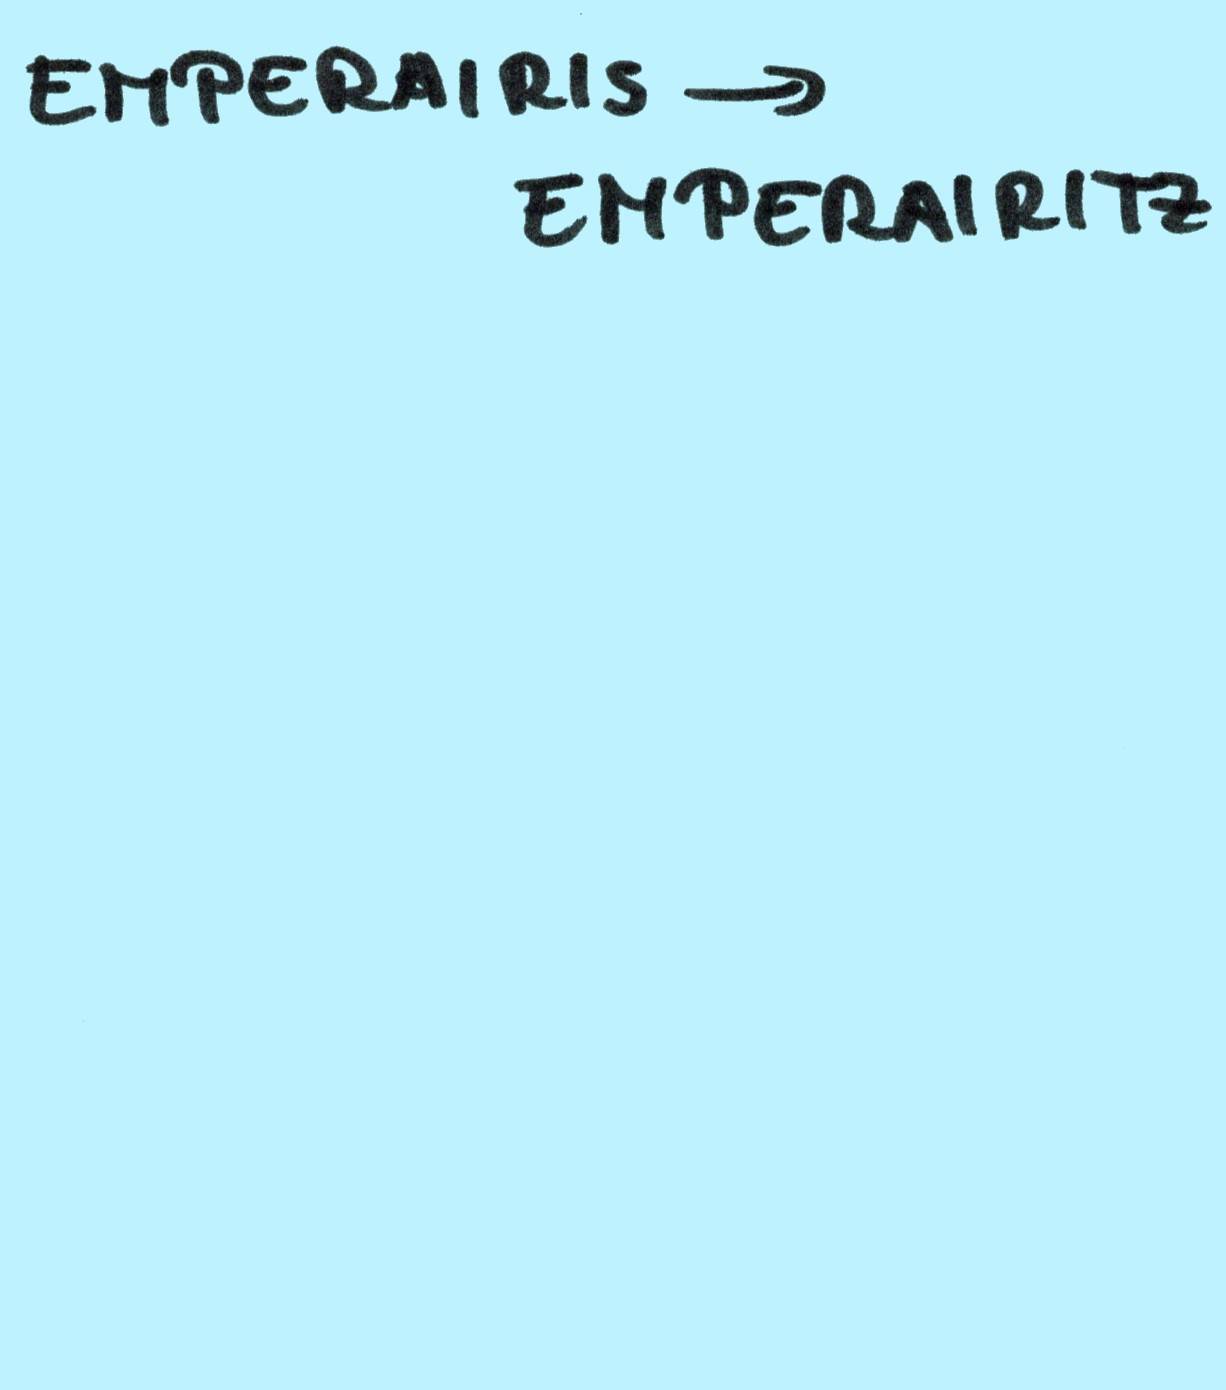 EMPERAIRIS →
EMPERAIRITZ